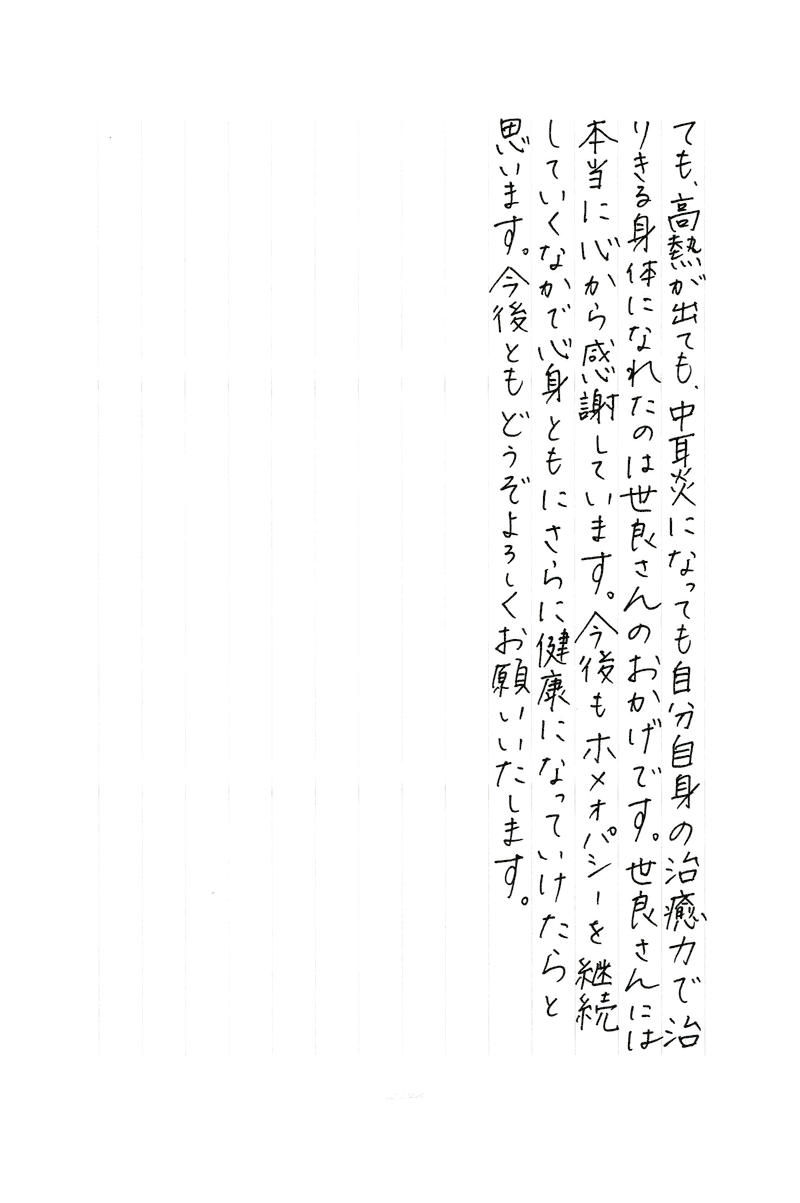 ても、高熱が出ても、中耳炎になっても自分自身の治癒力で治
りきる身体になれたのは世良さんのおかげです。世良さんには
本当に心から感謝しています。今後もホメオパシーを継続
していくなかで心身ともにさらに健康になっていけたらと
思います。今後ともどうぞよろしくお願いいたします。